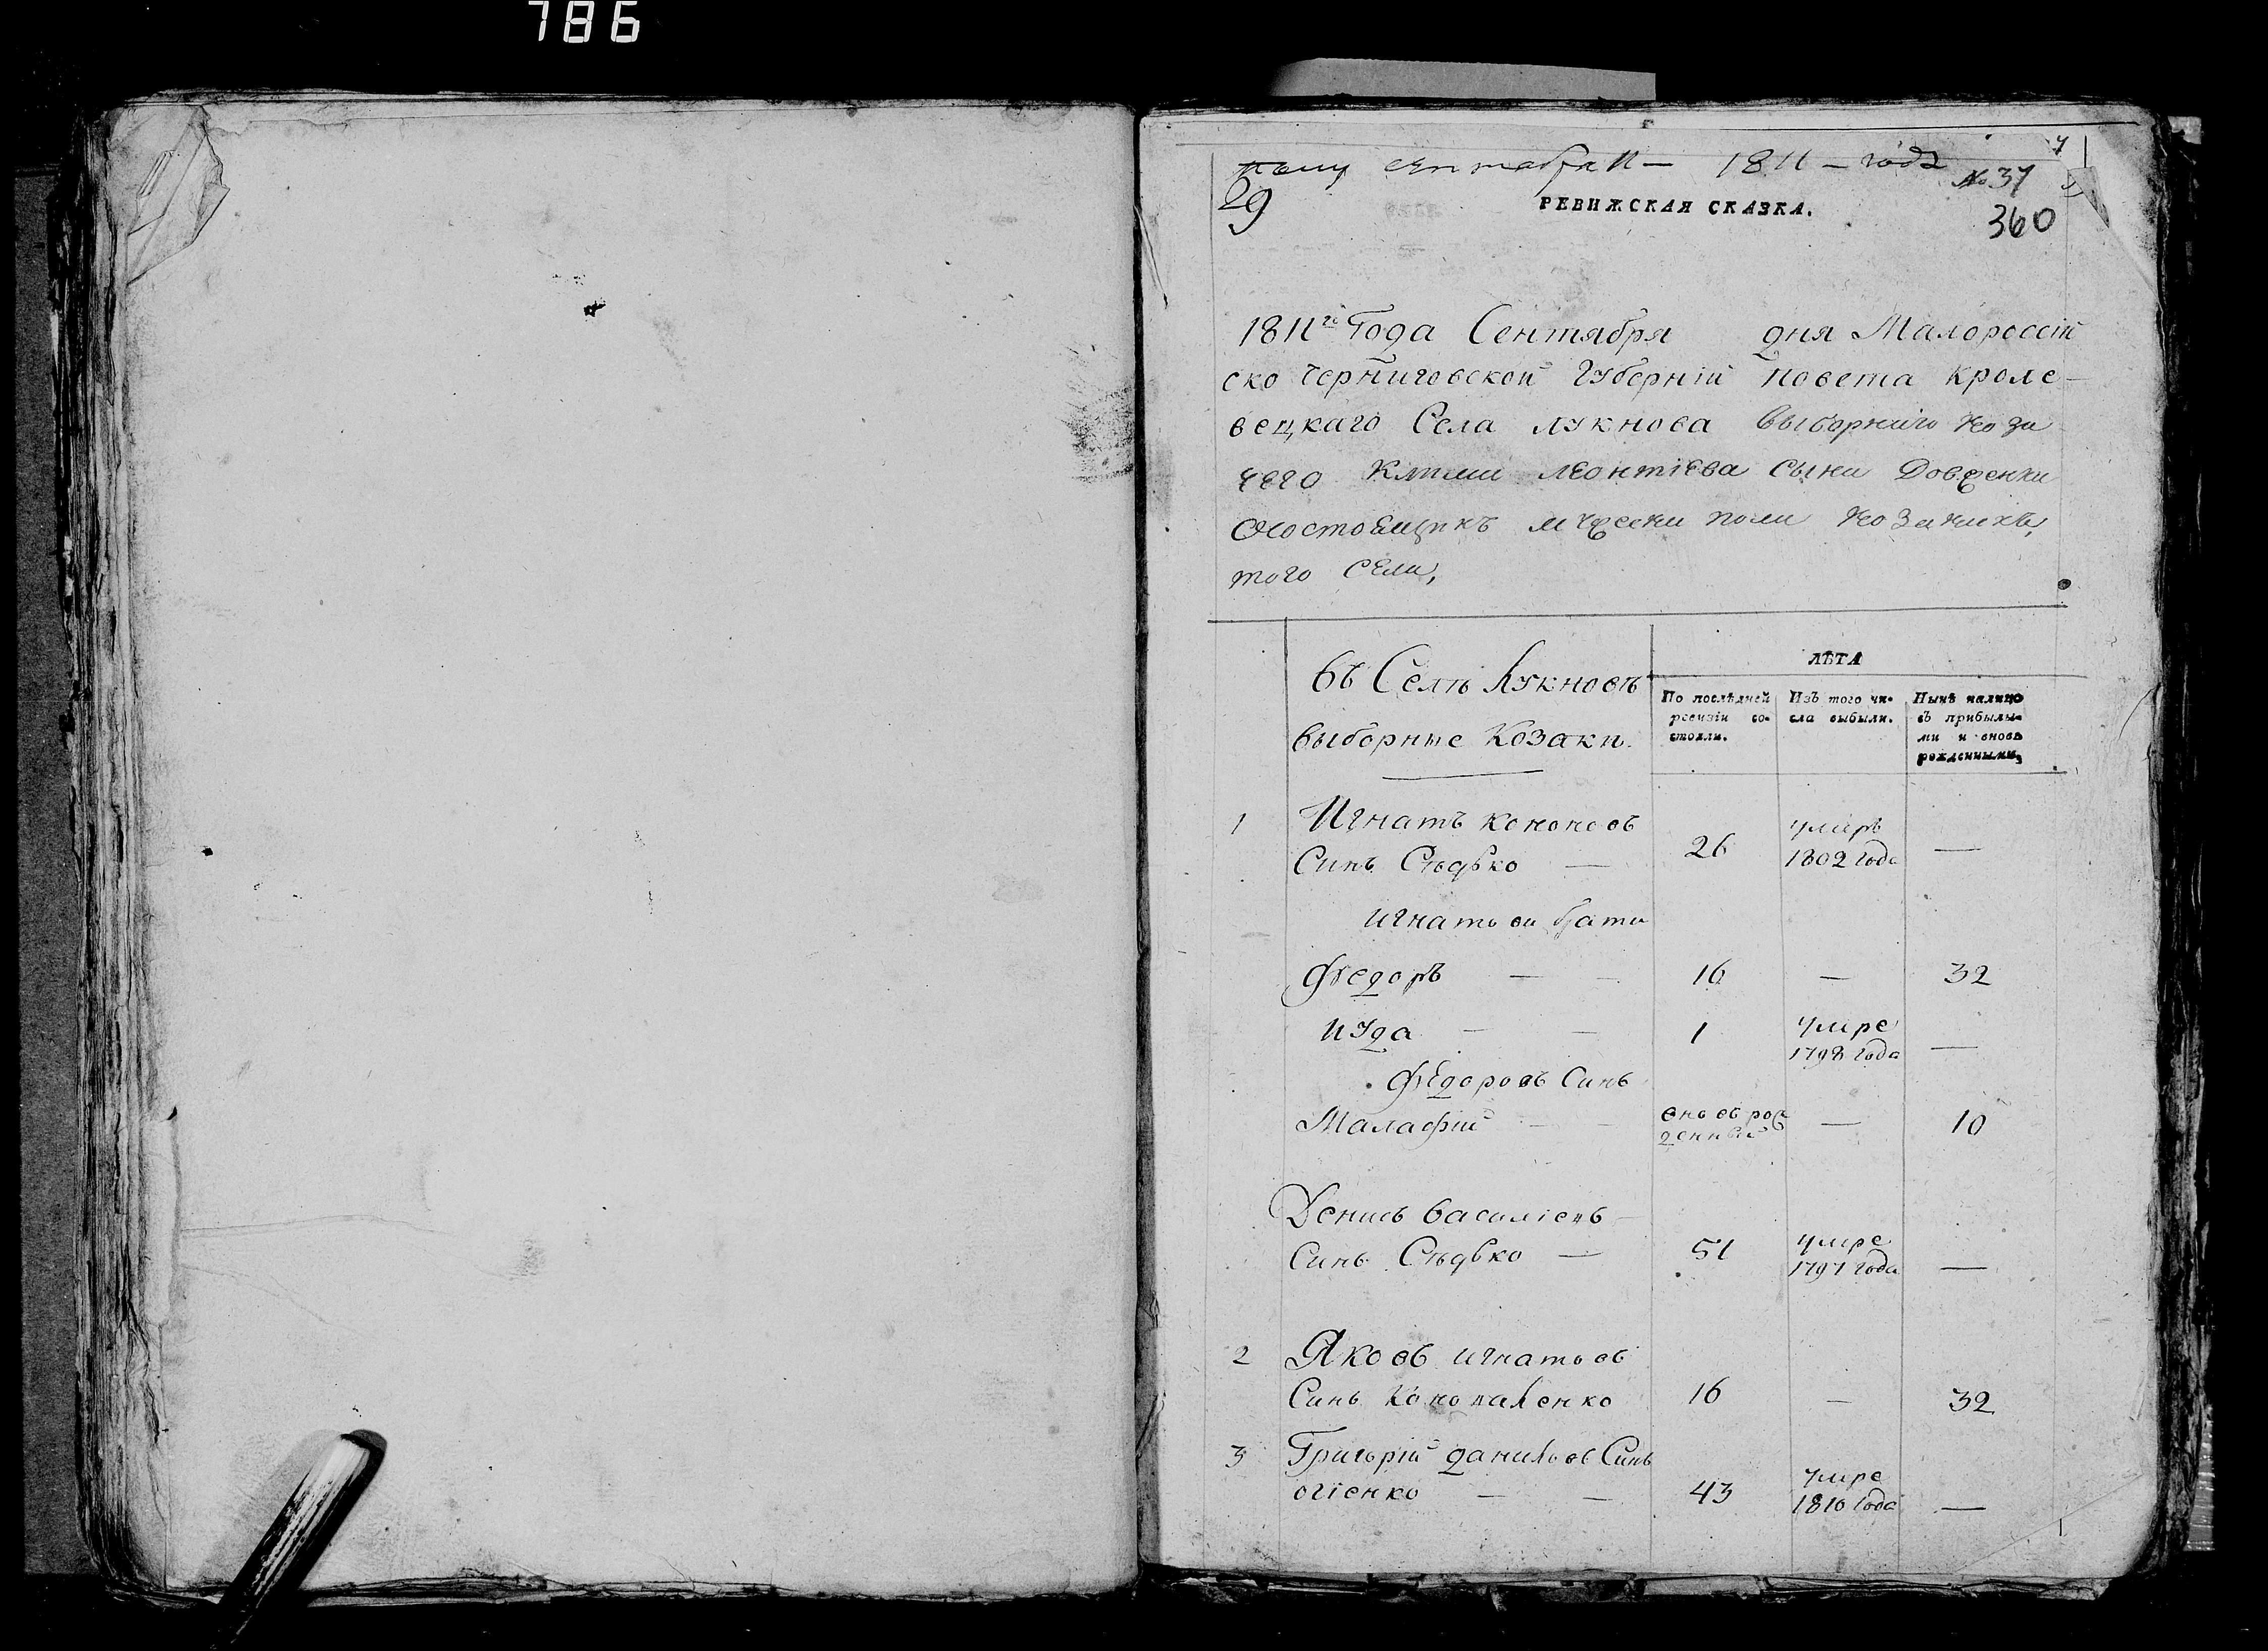 786
сентября 11 — 1811 — года
№ 37
29
РЕВИЖСКАЯ СКАЗКА.
360
1811го Года Сентября дня Малороссій
ско Черниговской Губерніи повета Кроле-
вецкаго Села Лукнова выборнаго коза
чего Леонтіева сына Довженка
о состоящихъ мужеска пола козакахъ,
того Села,
Въ Селѣ Лукновѣ
выборные Козаки.
ЛѢТА
По послѣдней ревизіи состояли.
Изъ того числа выбыли.
Нынѣ налицо съ прибылыми и вновь рожденными,
1 Игнатъ Кононовъ
Синъ Сѣдько — 26 умеръ 1802 года —
Игнатови брати
Федоръ — — 16 — 32
Иуда — — 1 умре 1798 года —
Федоровъ Синъ
Малафій — — вновь рожденный — 10
Денисъ Василіевъ
Синъ Сѣдько — 51 умре 1797 года —
2 Яковъ Игнатовъ
Синъ Коноваленко 16 — 32
3 Григорій Даниловъ Синъ
Огіенко — — 43 умре 1810 года —